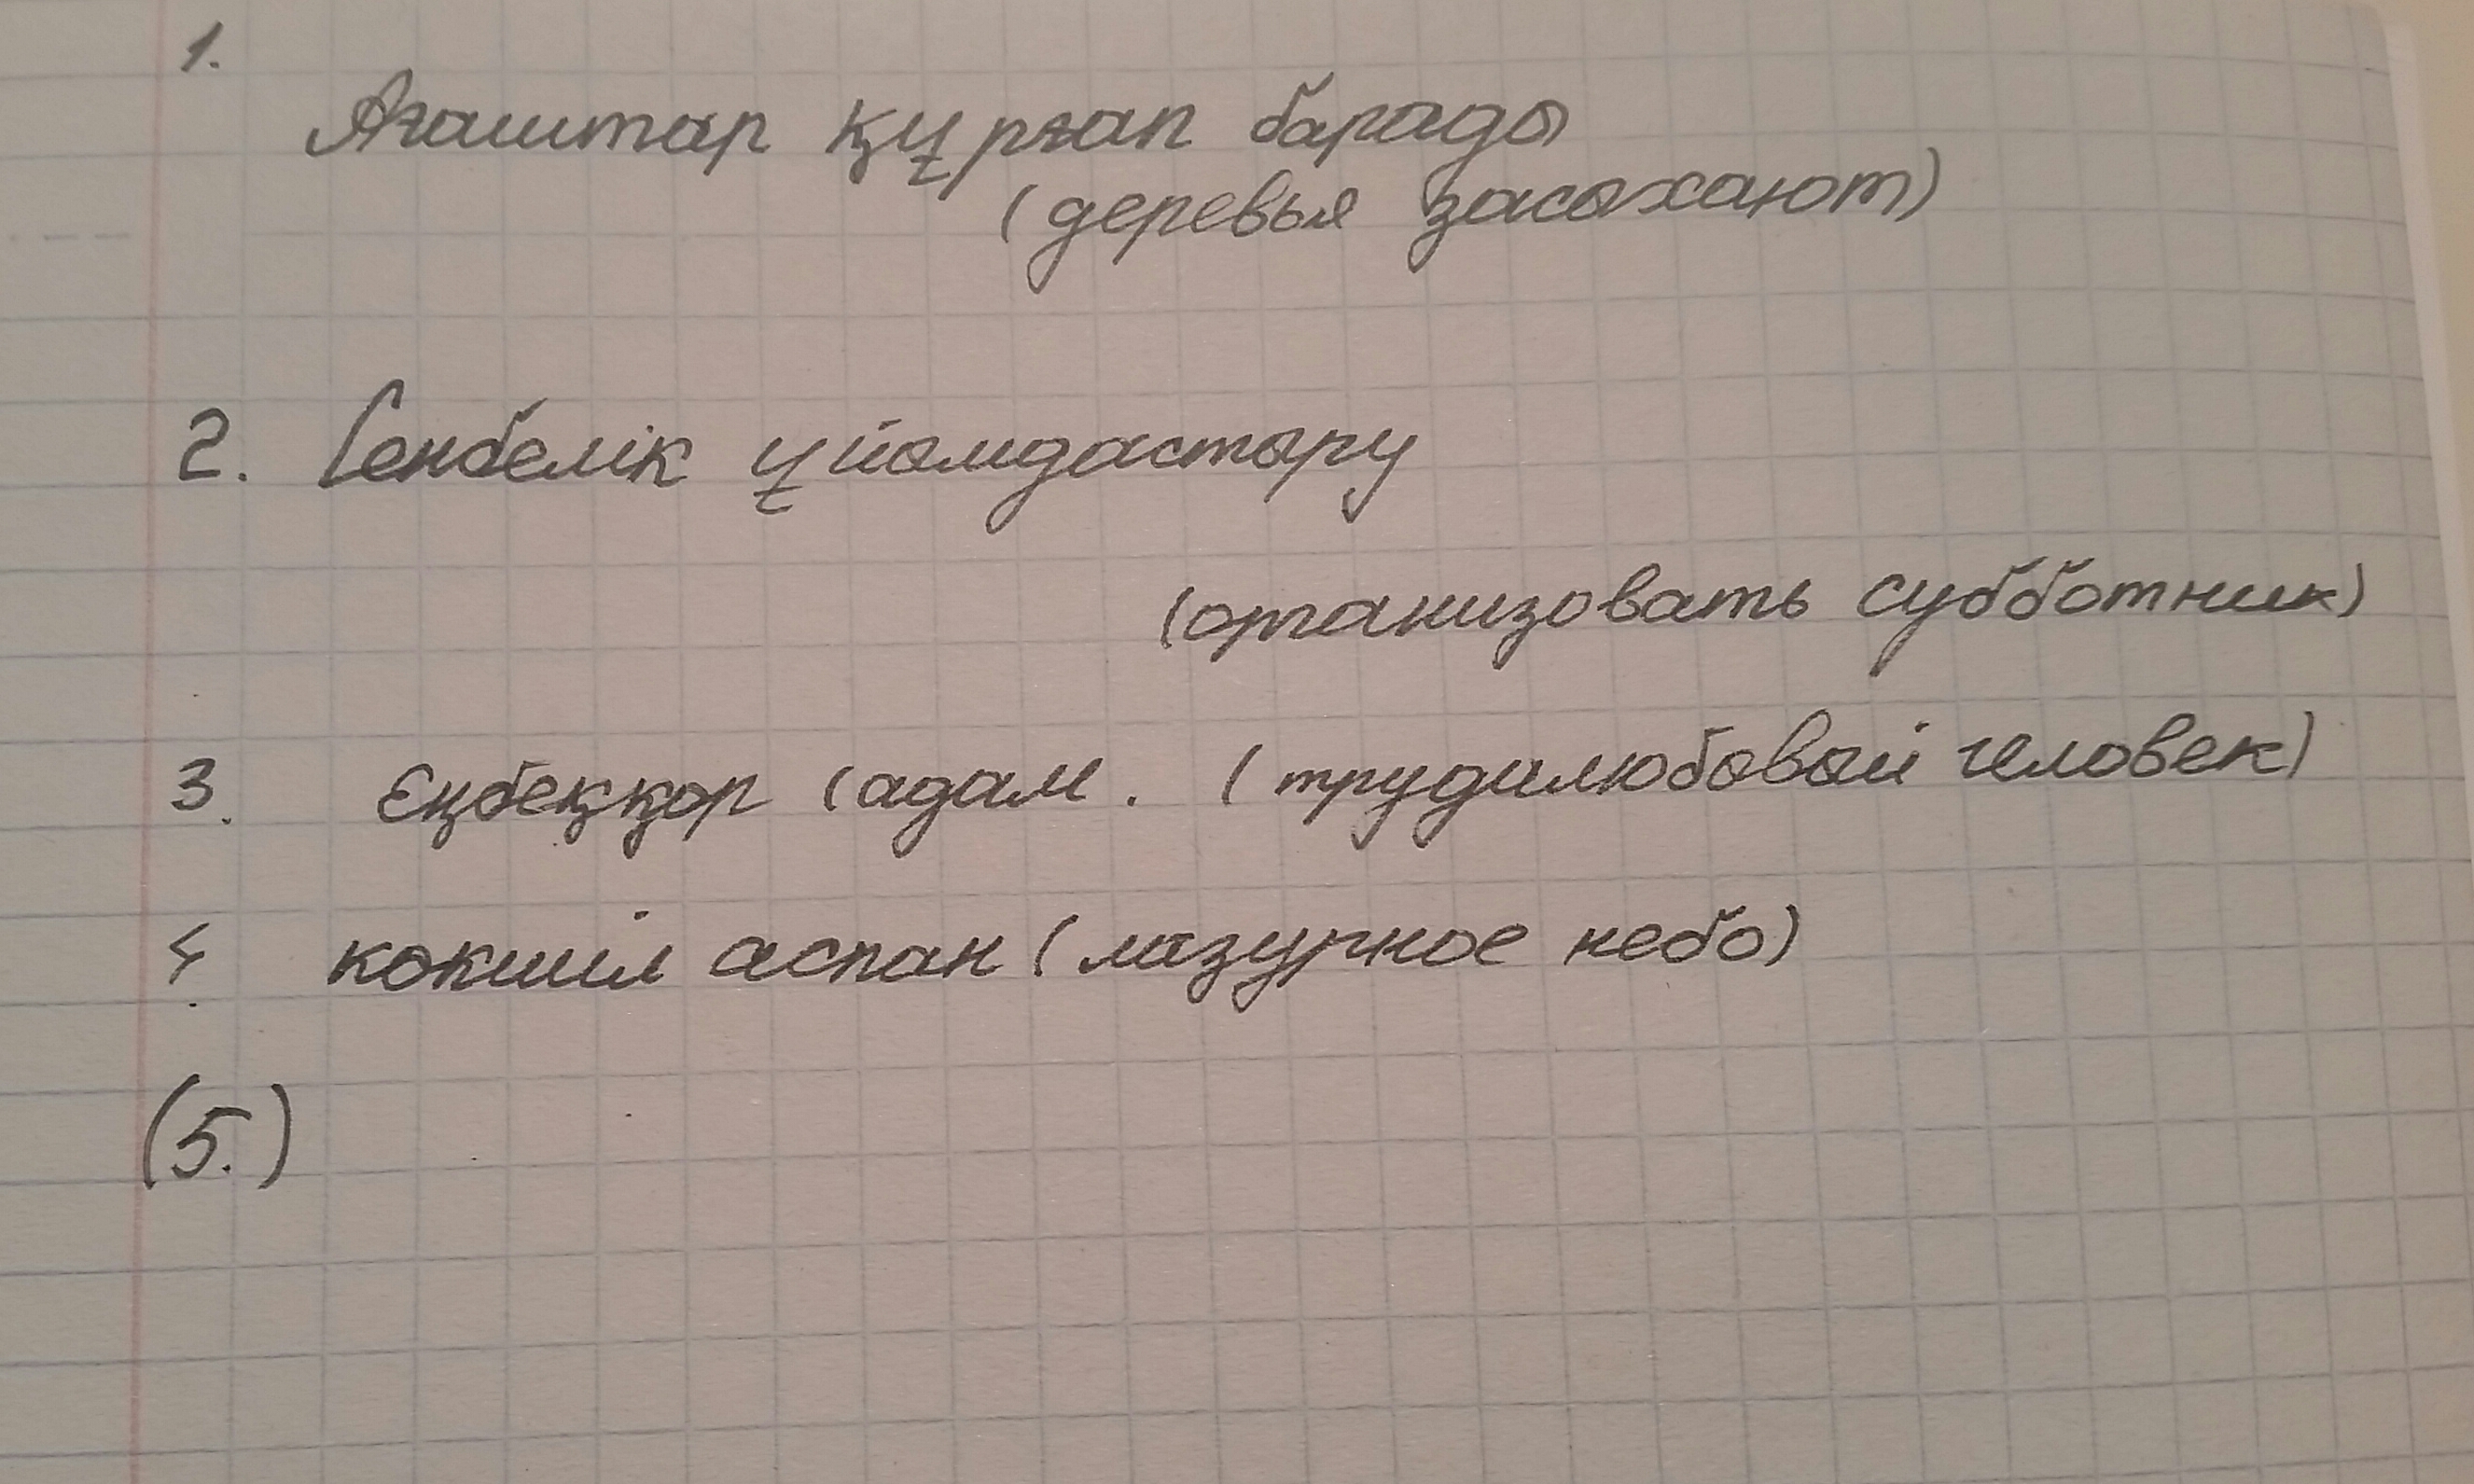 1.
Ағаштар құрғап барады
(деревья засыхают)
2. Сенбелік ұйымдастыру
(организовать субботник)
3. Еңбеққор (адам. (трудилюбовый человек)
4. кокшіл аспан (лазурное небо)
(5.)